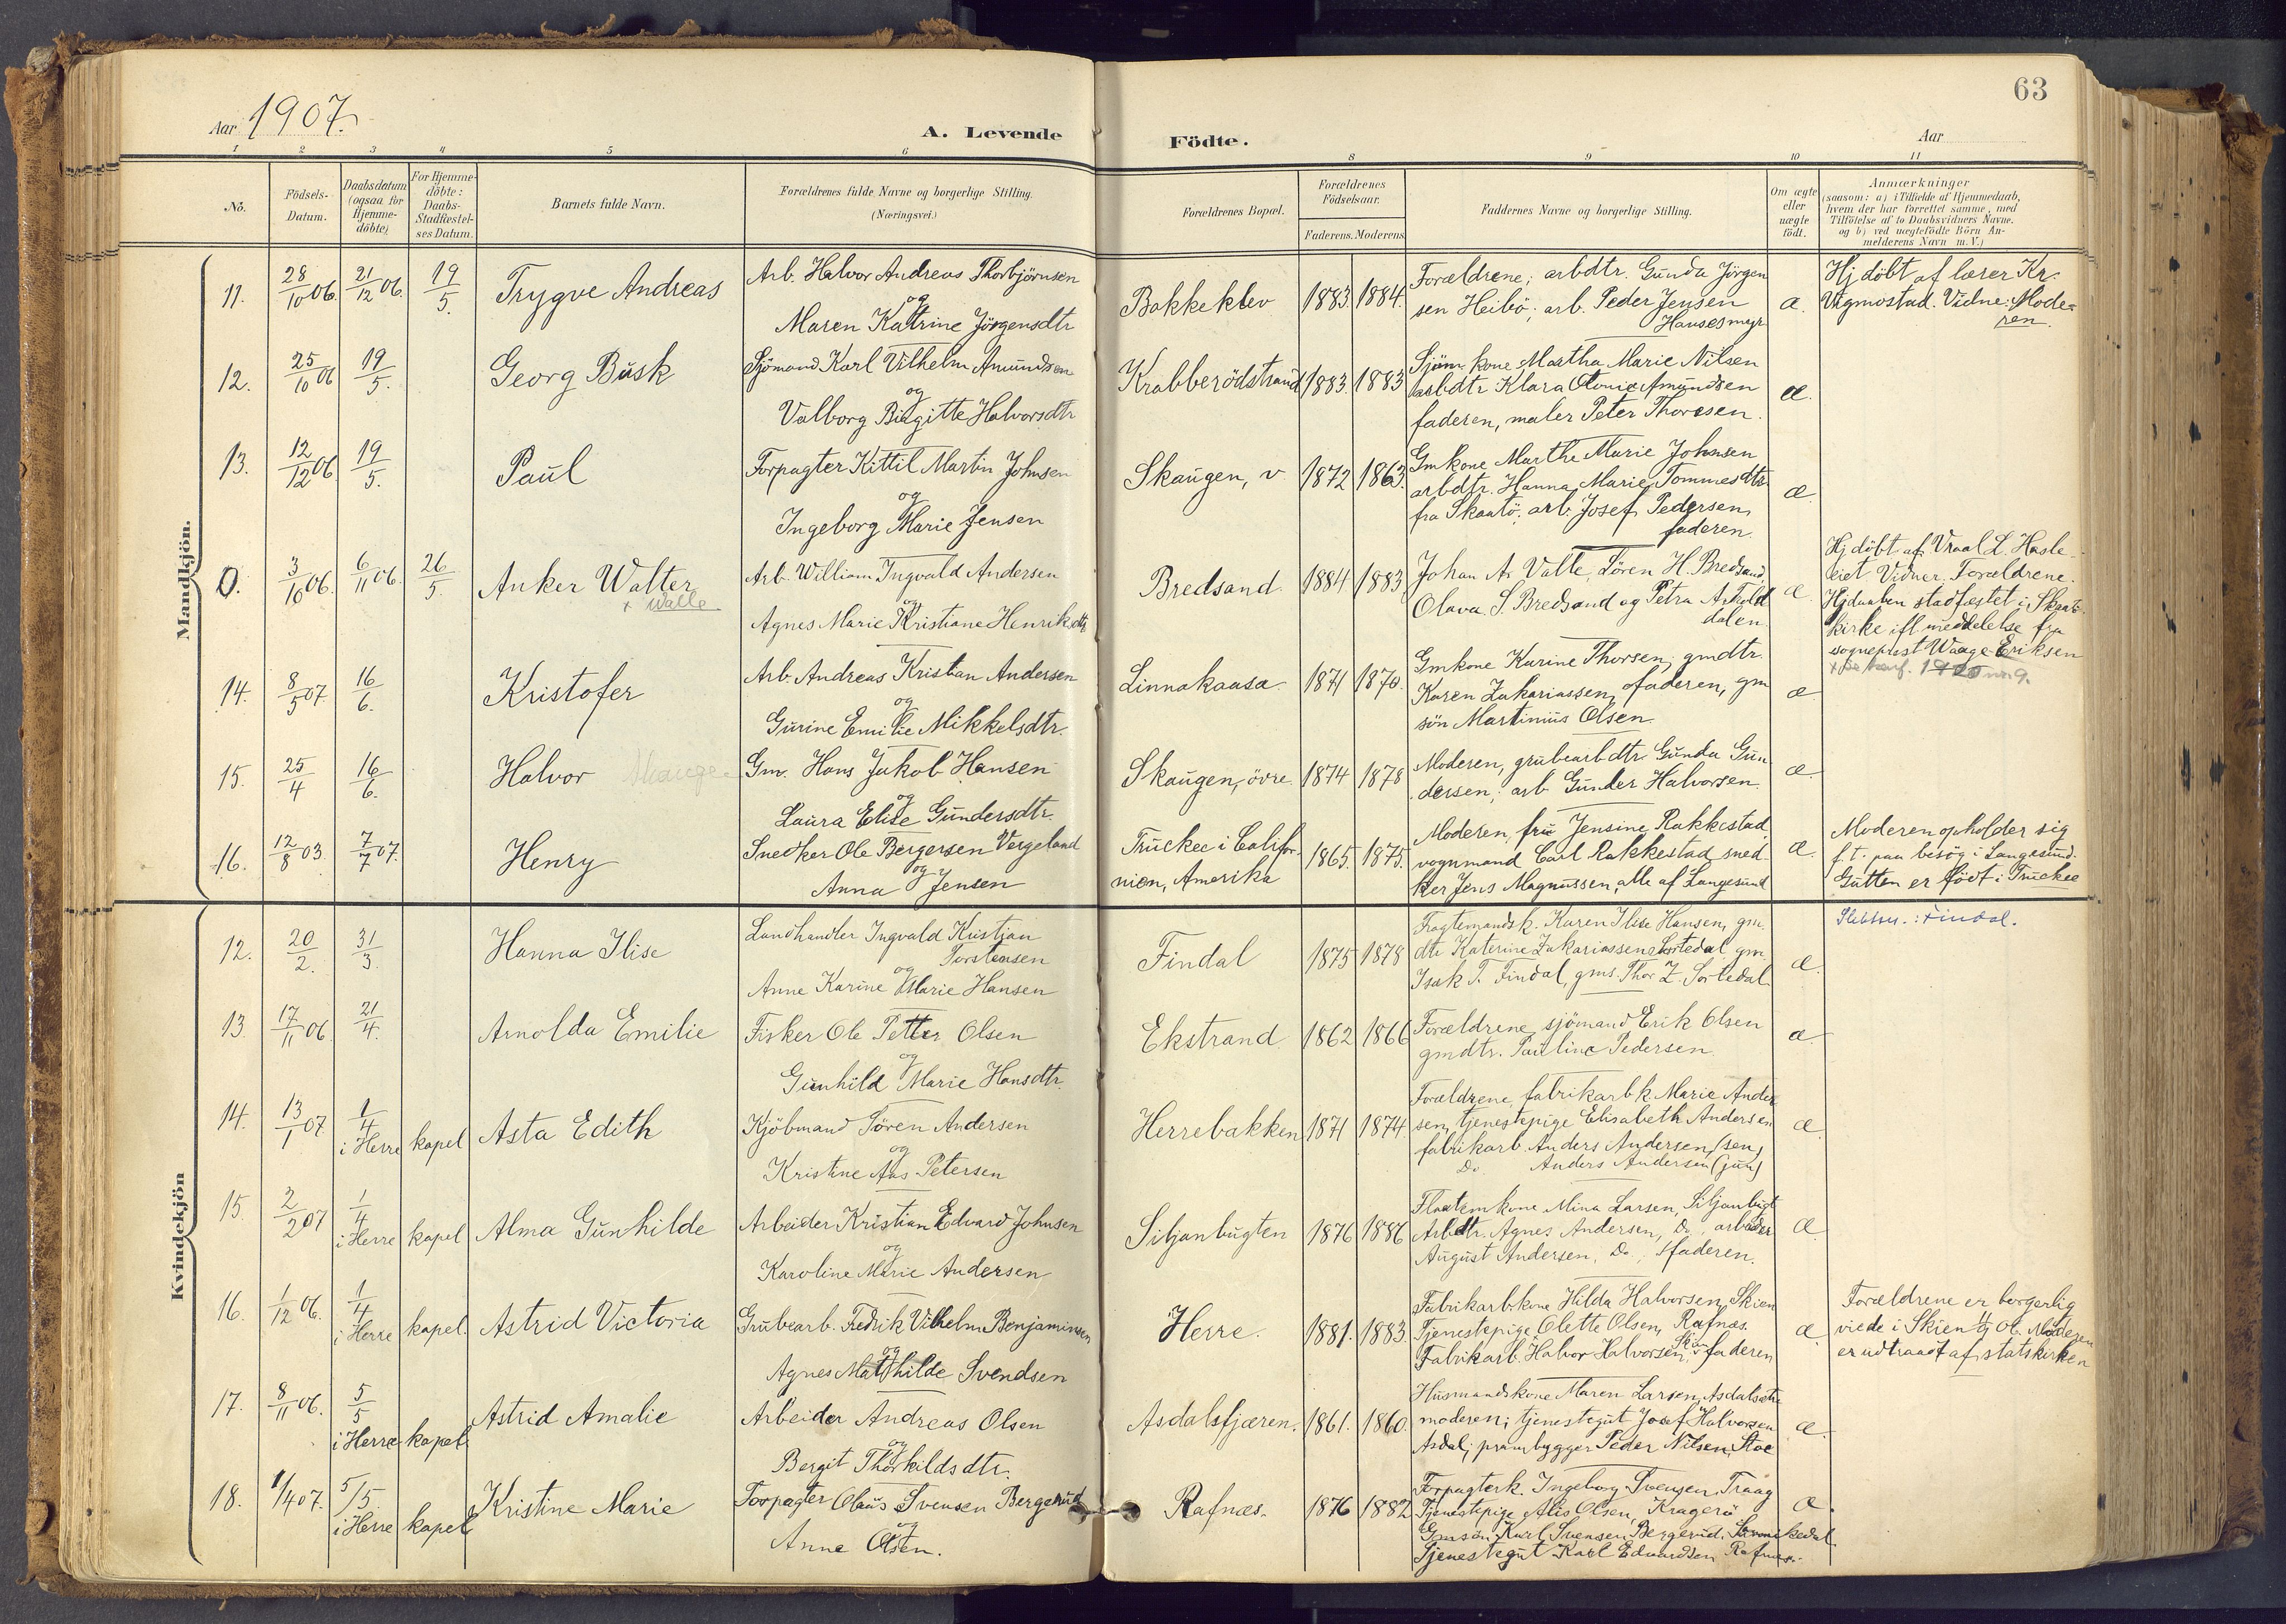 63
Aar 1907.
A. Levende Födte.
Aar
1 2 3 4 5 6 8 9 10 11
No.
Födsels-
Datum.
Daabsdatum
(ogsaa for
Hjemme-
döbte)
For Hjemme-
döbte:
Daabs-
Stadfæstel-
ses Datum.
Barnets fulde Navn.
Forældrenes fulde Navne og borgerlige Stilling.
(Næringsvei.)
Forældrenes Bopæl.
Forældrenes
Födselsaar.
Faderens. Moderens.
Faddernes Navne og borgerlige Stilling.
Om ægte
eller
uægte
födt.
Anmærkninger
(saasom: a) i Tilfælde af Hjemmedaab,
hvem der har forrettet samme, med
Tilföielse af to Daabsvidners Navne.
og b) ved uægtefödte Börn An-
melderens Navn m.V.)
Mandkjön.
11. 28/10 06. 21/12 06. 19/5. Trygve Andreas
Arb. Halvor Andreas Thorbjörnsen
og
Maren Katrine Jörgensdtr
Bakkeklev 1883. 1884.
Forældrene; arbdtr. Gunda Jörgen
sen Heibö; arb. Peder Jensen
Hansesmyr
æ.
Hj döbt af lærer Kr.
Vigmostad. Vidne: Mode-
ren.
12. 25/10 06 19/5. Georg Busk
Sjömand Karl Vilhelm Amundsen
og
Valborg Birgitte Halvorsdtr
Krabberödstrand 1883. 1883
Sjöm. kone Martha Marie Nilsen
arbdtr Klara Otonie Amundsen
faderen, maler Peter Thoresen.
æ.
13. 12/12 06 19/5. Paul
Forpagter Kittil Martin Johnsen
og
Ingeborg Marie Jensen
Skaugen, v 1872 1863.
Gmkone Marthe Marie Johnsen
arbdtr. Hanna Marie Tommesdtr
fra Skaatö; arb Josef Pedersen,
faderen.
æ.
0. 3/10 06. 6/11 06. 26/5. Anker Walter
+ Walle
Arb. William Ingvald Andersen
og
Agnes Marie Kristiane Henriksdtr
Bredsand. 1884 1883
Johan A. Valle, Sören H. Bredsand,
Olava S. Bredsand og Petra
dalen
æ.
Hj döbt af Vraal L. Hasle-
eiet Vidner. Forældrene.
Hjdaaben stadfæstet i Skaatö
kirke ifl meddelelse fra
sogneprest Waage Eriksen
14. 8/5 07. 16/6. Kristofer
Arb. Andreas Kristian Andersen
og
Gurine Emilie Mikkelsdtr.
Linnakaasa 1871 1870.
Gmkone Karine Thorsen; gmdtr.
Karen Zakariassen, faderen, gm
sön Martinius Olsen.
æ
15. 25/4 16/6. Halvor
Gm. Hans Jakob Hansen
og
Laura Elise Gundersdtr.
Skaugen, övre 1874 1878
Moderen, grubearbdtr. Gunda Gun
dersen; arb Gunder Halvorsen.
æ.
16. 12/8 03. 7/7 07. Henry
Snedker Ole Bergersen Vergeland
og
Anna Jensen
Truckee i Califor-
nien, Amerika 1865. 1875.
Moderen, fru Jensine Rakkestad,
vognmand Carl Rakkestad, sned-
ker Jens Magnussen, alle af Langesund
æ.
Moderen opholder sig
f.t. paa besög i Langesund.
Gutten er födt i Truckee
Kvindekjön
12. 20/2. 31/3. Hanna Ilise
Landhandler Ingvald Kristian
Torstensen
og
Anne Karine Marie Hansen
Findal 1875 1878
Fragtemandsk. Karen Ilise Hansen, gm.
dtr Katerine Zakariassen Sortedal, gm.
Isak T. Findal, gms. Thor Z. Sortedal.
æ.
: Findal.
13. 17/11 06. 21/4. Arnolda Emilie
Fisker Ole Petter Olsen
og
Gunhild Marie Hansdtr.
Ekstrand 1862 1866
Forældrene, sjömand Erik Olsen
gmdtr. Pauline Pedersen.
æ
14. 13/1 07. 1/4 i Herre kapel Asta Edith
Kjöbmand Sören Andersen
og
Kristine Aas Petersen
Herrebakken 1871 1874.
Forældrene, fabrikarbk Marie Ander
sen, tjenestepige Elisabeth Andersen
fabrikarb. Anders Andersen (sen)
Do Anders Andersen (jun)
æ.
15 2/2 07 1/4 i Herre kapel Alma Gunhilde
Arbeider Kristian Edvard Johnsen
og
Karoline Marie Andersen
Siljanbugten 1876 1886
Flaatemkone Mina Larsen, Siljanbugt
Arbdtr. Agnes Andersen, Do, arbeider
August Andersen, Do, faderen.
æ.
16. 1/12 06. 1/4 i Herre kapel. Astrid Victoria
Grubearb. Fredrik Vilhelm Benjaminsen
og
Agnes Mathilde Svendsen
Herre. 1881. 1883.
Fabrikarbkone Hilda Halvorsen, Skien
Tjenestepige Olette Olsen, Rafnæs.
Fabrikarb. Halvor Halvorsen, Skien, faderen
æ.
Forældrene er borgerlig
viede i Skien 06. Moderen
er udtraadt af statskirken
17. 8/11 06. 5/5 i Herre kapel. Astrid Amalie
Arbeider Andreas Olsen
og
Bergit Thorkildsdtr.
Asdalsfjæren. 1861. 1860.
Husmandskone Maren Larsen,
moderen; tjenestegut Josef Halvorsen
Asdal; prambygger Peder Nilsen, Stoe
æ.
18. 1/4 07. 5/5. i Herre kapel Kristine Marie
Forpagter Olaus Svensen Bergerud
og
Anne Olsen.
Rafnæs. 1876 1882
Forpagterk. Ingeborg Svensen, Traag
Tjenestepige Alis Olsen, Kragerö
Gmsön Karl Svensen Bergerud,
Tjenestegut Karl Edvardsen Rafnæs.
æ.